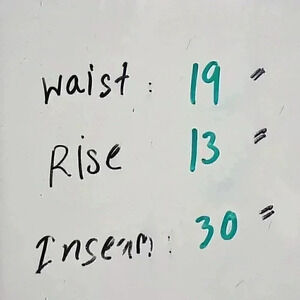 Waist : 19 "
Rise 13 "
Inseam : 30 "